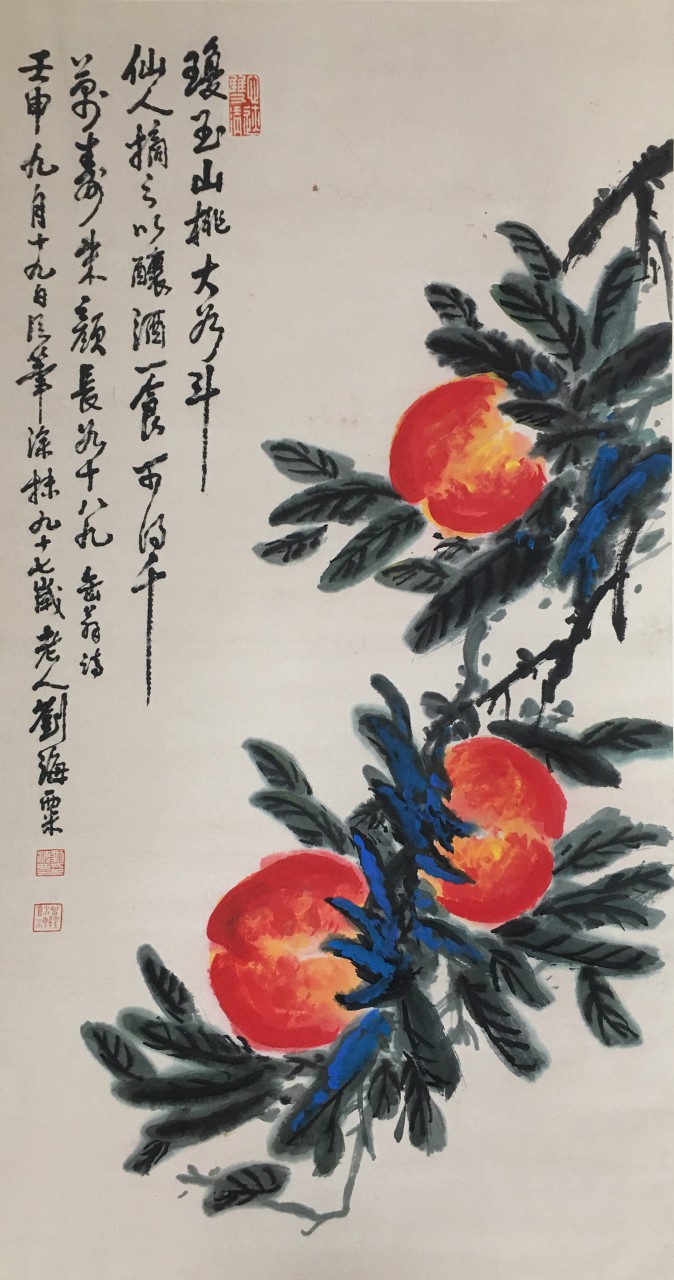 瓊玉山桃大如斗
仙人摘之以釀酒一食可得千
萬壽朱顏長如十八九 缶翁詩
壬申九月十九日 筆涂抹九十七歲老人劉海粟